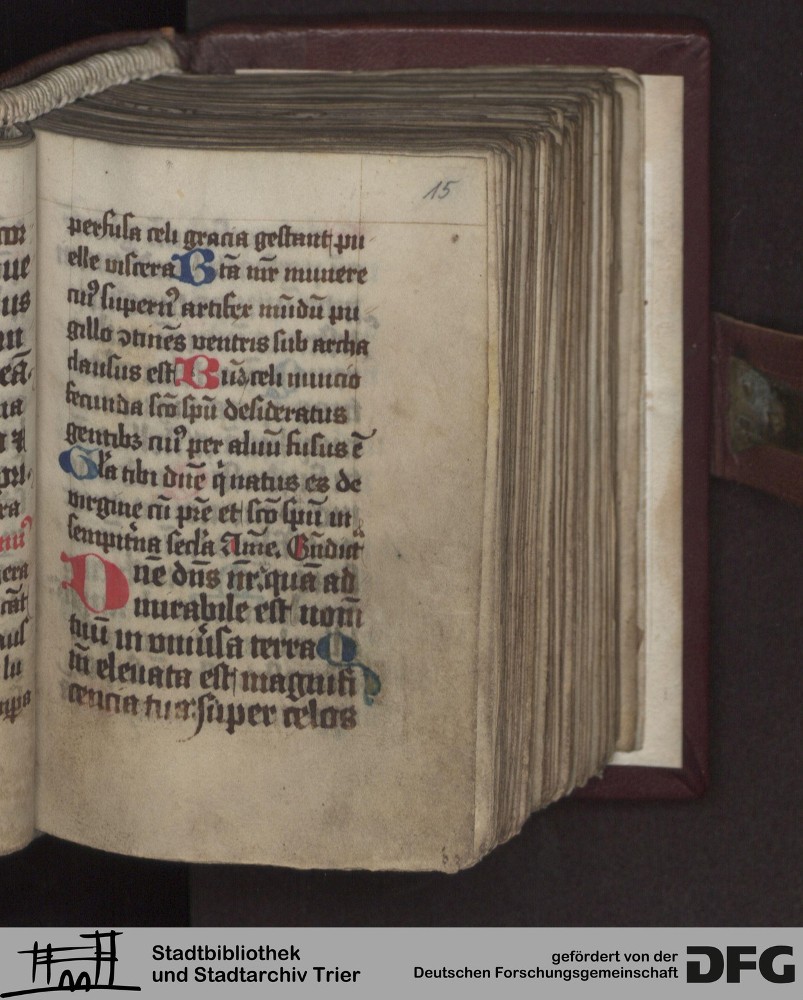 15
perfusa celi gracia gestant pu
elle viscera Bta mr̄ munere
cui⁹ supern⁹ artifex mūdū pu
gillo ꝯtinēs ventris sub archa
clausus est Btā celi nuncio
fecunda scō spū desideratus
gentibꝫ cui⁹ per aluū fusus ē
Gla tibi dn̄e q natus es de
virgine cū pr̄e et scō spū in
sempitna secla Amē.
Dne dn̄s nr̄ quā ad
mirabile est nom̄
tuū in vniusa terra Q
m̄ eleuata est magnifi
cencia tua super celos
Stadtbibliothek
und Stadtarchiv Trier
gefördert von der
Deutschen Forschungsgemeinschaft
DFG